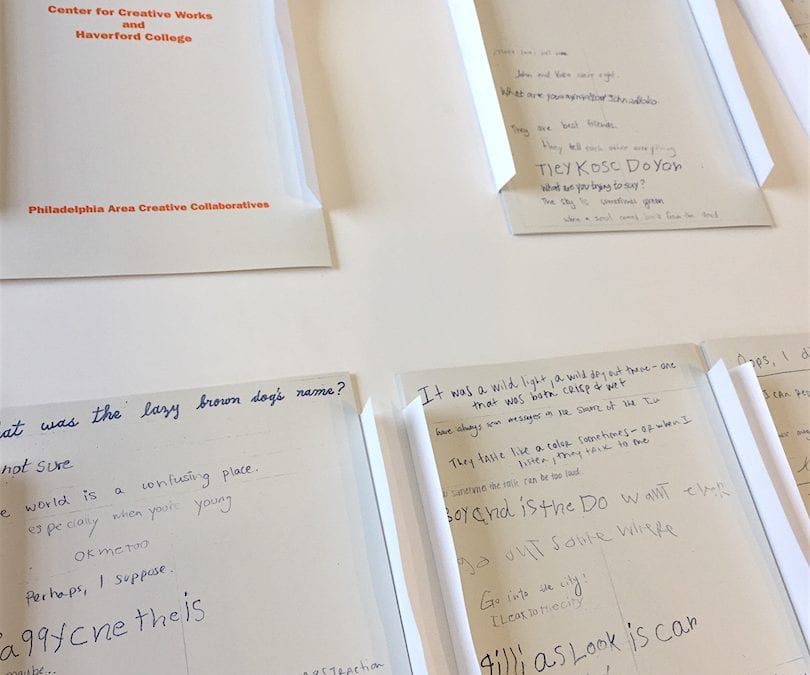 Center for Creative Works
and
Haverford College
Philadelphia Area Creative Collaboratives
John and
What are you
They are best friends.
they tell each other everything
TleyKoscDoyon
What are you trying to say?
The sky is sometimes green
when a soul comes back from the dead
at was the lazy brown dog's name?
not sure
e world is a confusing place.
especially when you're young
OK me too
Perhaps, I suppose.
aggycnetheis
maybe...
ABSTRACTION
It was a wild light, a wild day out there - one
that was both crisp & wet
have always seen messages in the source of the
They taste like a color sometimes - or when I
listen, they talk to me
sometimes the talk can be too loud.
Boyand istheDo want
go out some where
Go into the city!
illi asLook is can
Oops, I d